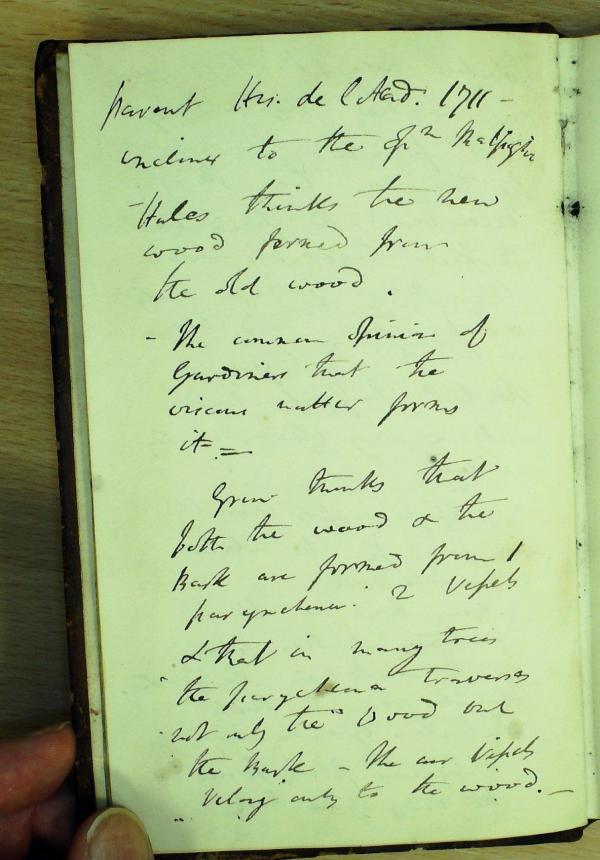 Parent His. de l'Acad. 1711 -
inclines to the opn Malpighi
- Hales thinks the new
wood formed from
the old wood.
- The common opinion of
Gardiners that the
viscous matter forms
it =
Grew thinks that
both the wood & the
Bark are formed from 1
parynchema. 2 Vessels
& that in many trees
the parychema traverses
not only the wood but
the Bark - The air Vessels
belong only to the wood. -